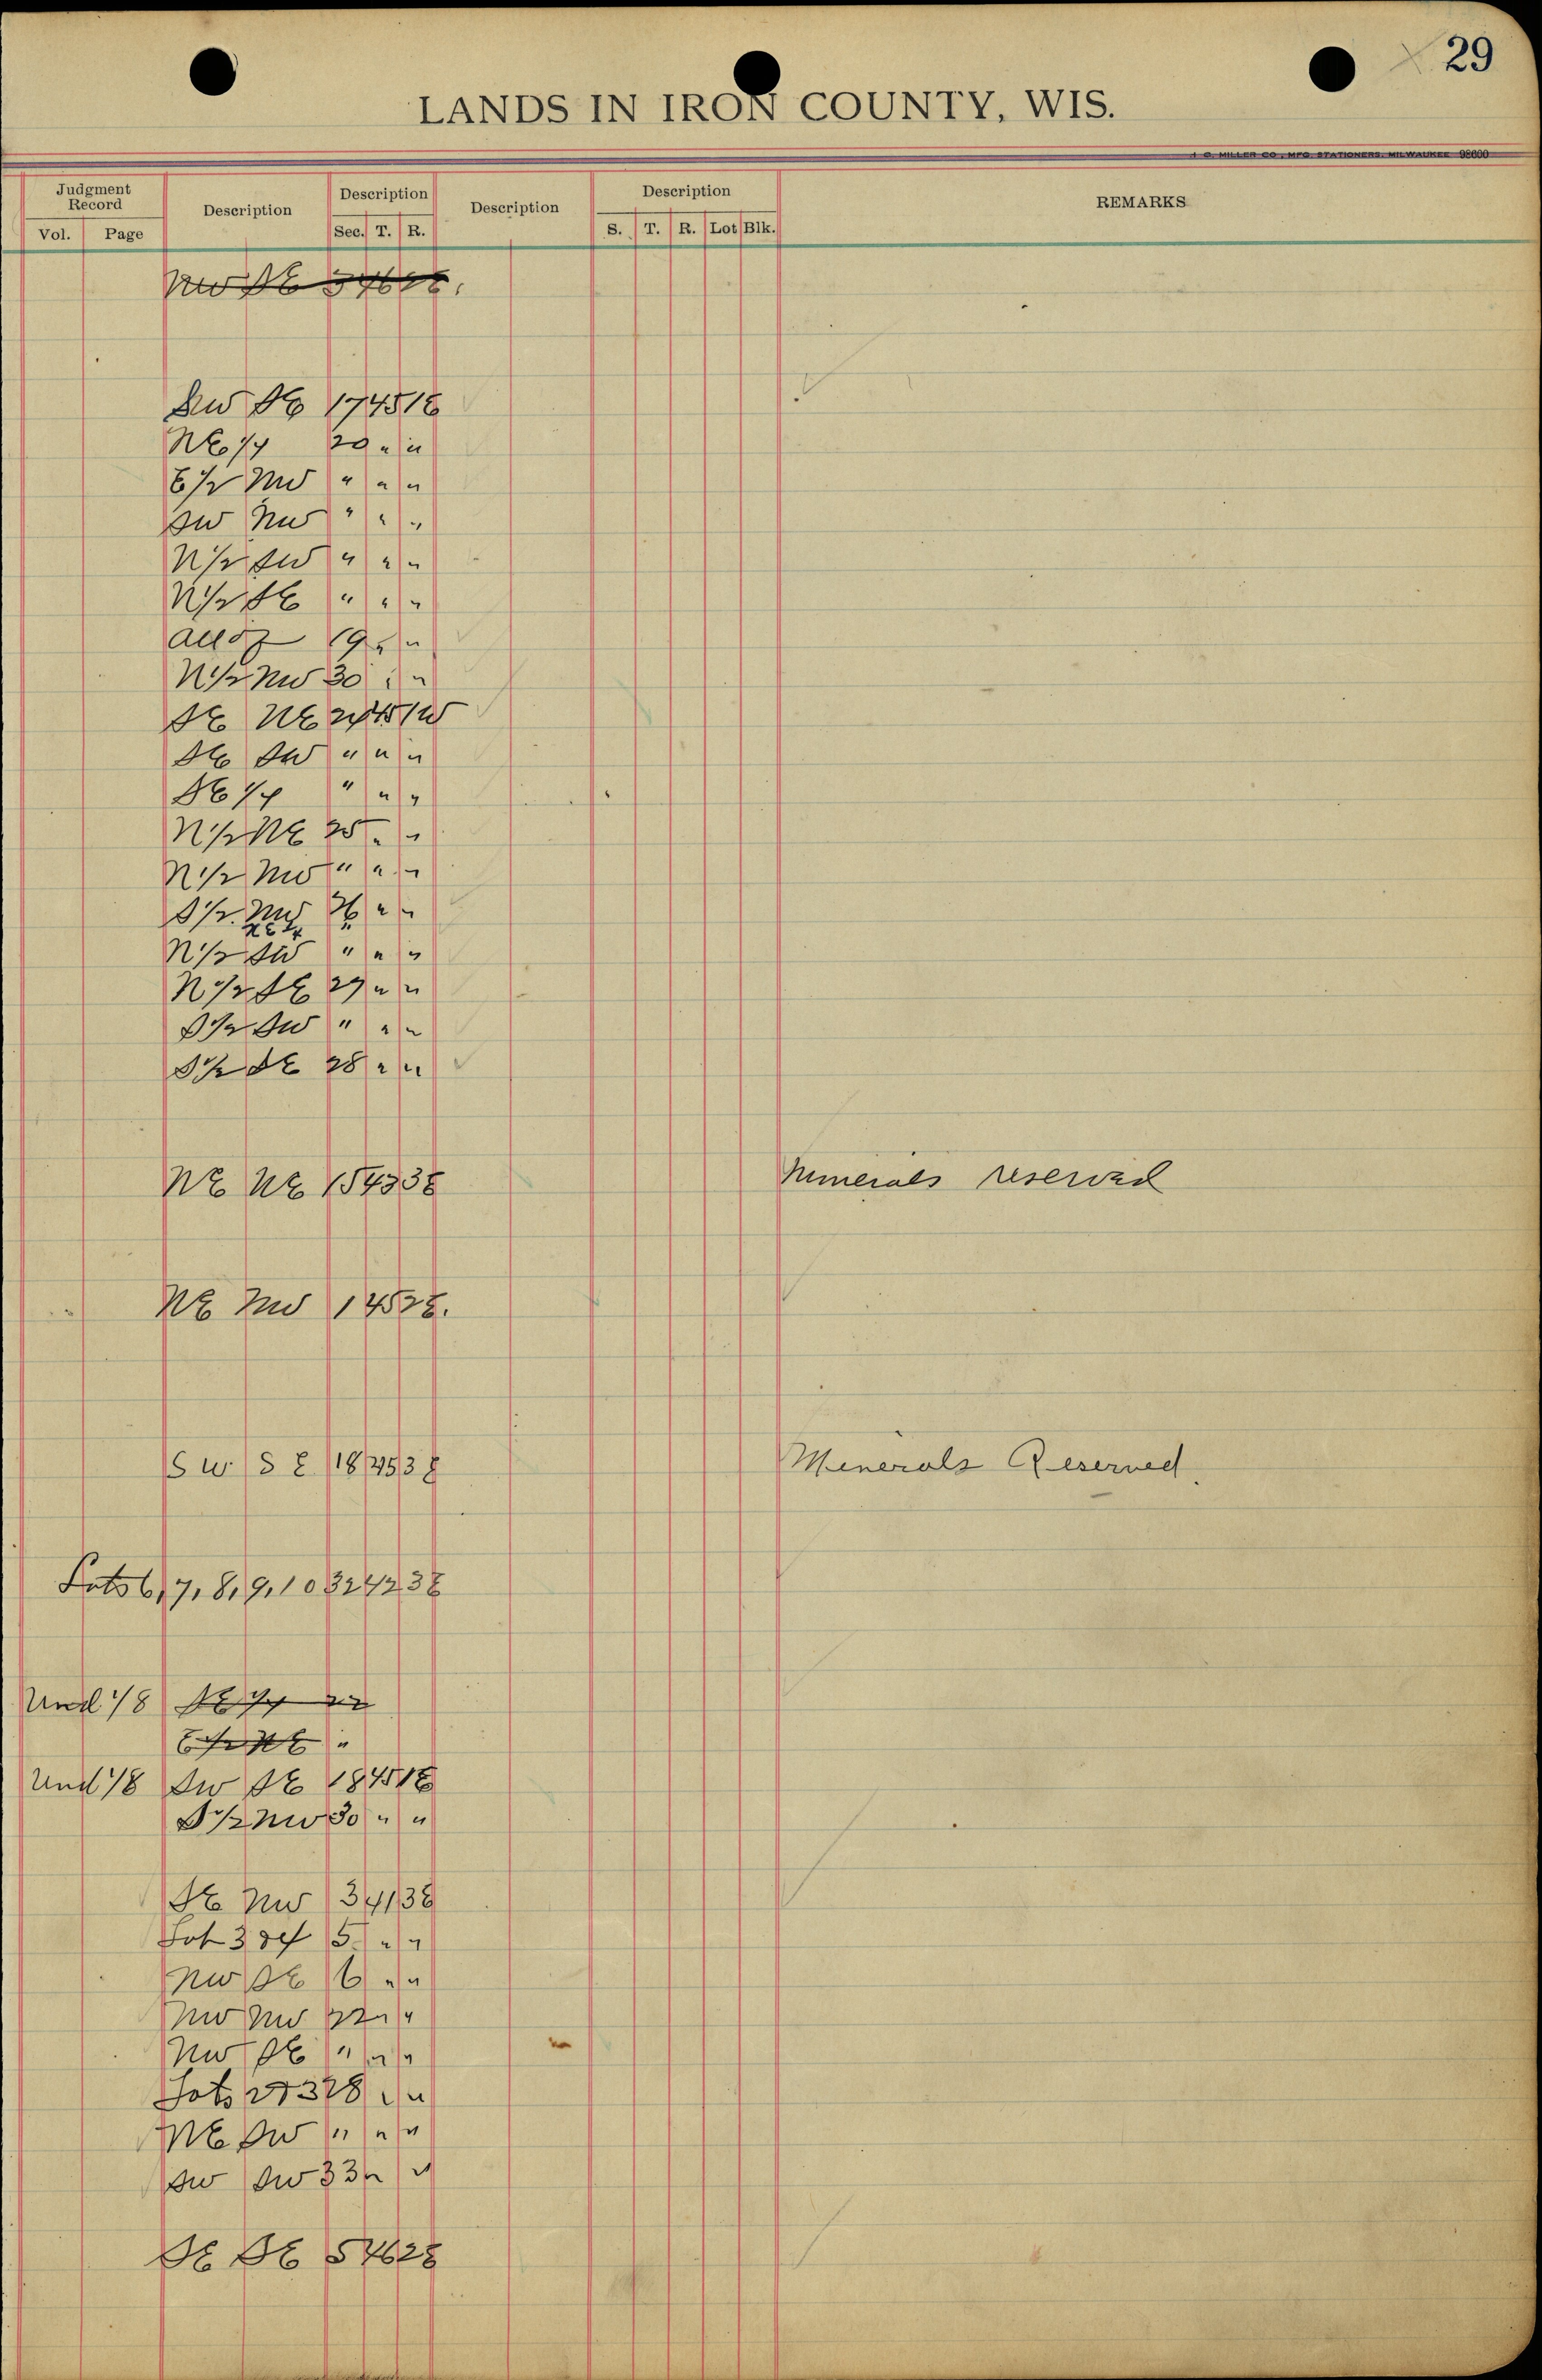 29
LANDS IN IRON COUNTY, WIS.
MILLER CO., MFG. STATIONERS, MILWAUKEE 98600
Judgment Record Description Description Description Description REMARKS
Vol. Page Sec. T. R. S. T. R. Lot Blk.
NW SE 5 46 1E.
SW SE 17 45 1E
NE 1/4 20 " "
E 1/2 NW " " "
SW NW " " "
N 1/2 SW " " "
N 1/2 SE " " "
all of 19 " "
N 1/2 NW 30 " "
SE NE 24 45 1W
SE SW " " "
SE 1/4 " " "
N 1/2 NE 25 " "
N 1/2 NW " " "
S 1/2 NW 26 " "
NE 1/4 "
N 1/2 SW " " "
N 1/2 SE 27 " "
S 1/2 SW " " "
S 1/2 SE 28 " "
NE NE 15 43 3E Minerals reserved
NE NW 1 45 2E.
SW SE 18 45 3E Minerals Reserved.
Lots 6, 7, 8, 9, 10 32 42 3E
Und 1/8 SE 1/4 22
E 1/2 NE "
Und 1/8 SW SE 18 45 1E
S 1/2 NW 30 " "
SE NW 3 41 3E
Lot 3 & 4 5 " "
NW SE 6 " "
NW NW 22 " "
NW SE " " "
Lots 2 & 3 28 " "
NE SW " " "
SW SW 33 " "
SE SE 5 46 2E